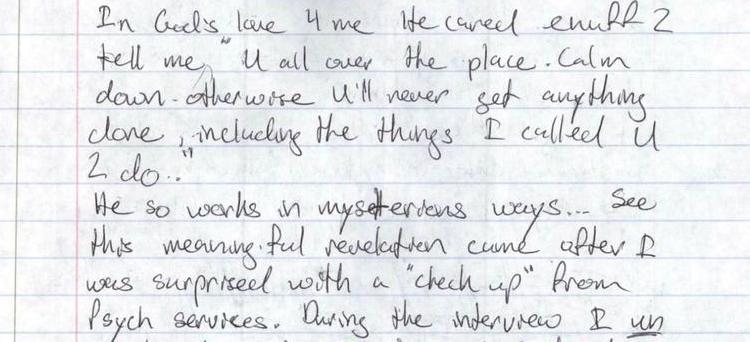 In God's love 4 me He cared enuff 2
tell me, "U all over the place. Calm
down - otherwise U'll never get anything
done, including the things I called U
2 do.."
He so works in mysterious ways... See
this meaning-ful revelation came after I
was surprised with a "check up" from
Psych services. During the interview I un